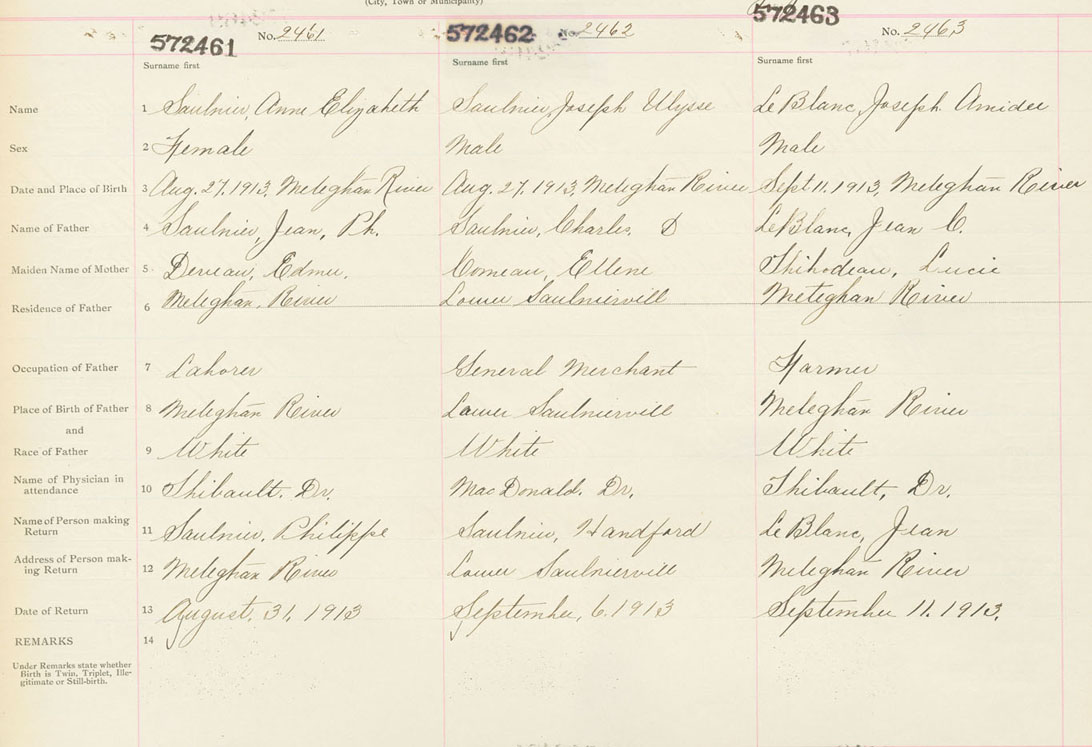 (City, Town or Municipality)
572461 No. 2461 572462 No. 2462 572463 No. 2463
Surname first Surname first Surname first
Name 1 Saulnier, Anne Elizabeth Saulnier, Joseph Ulysse LeBlanc, Joseph Amidee
Sex 2 Female Male Male
Date and Place of Birth 3 Aug. 27. 1913, Meteghan River Aug. 27. 1913, Meteghan River Sept 11. 1913, Meteghan River
Name of Father 4 Saulnier, Jean, Ph. Saulnier, Charles. D LeBlanc, Jean C.
Maiden Name of Mother 5 Deveau, Edmee. Comeau, Ellene Thibodeau, Lucie
Residence of Father 6 Meteghan, River Lower Saulniervill Meteghan River
Occupation of Father 7 Laborer General Merchant Farmer
Place of Birth of Father 8 Meteghan River Lower Saulniervill Meteghan River
and
Race of Father 9 White White White
Name of Physician in
attendance 10 Thibault. Dr. MacDonald. Dr. Thibault, Dr.
Name of Person making
Return 11 Saulnier, Philippe Saulnier, Handford LeBlanc, Jean
Address of Person mak-
ing Return 12 Meteghan River Lower Saulniervill Meteghan River
Date of Return 13 August. 31. 1913 September, 6. 1913 September 11. 1913.
REMARKS 14
Under Remarks state whether
Birth is Twin, Triplet, Ille-
gitimate or Still-birth.